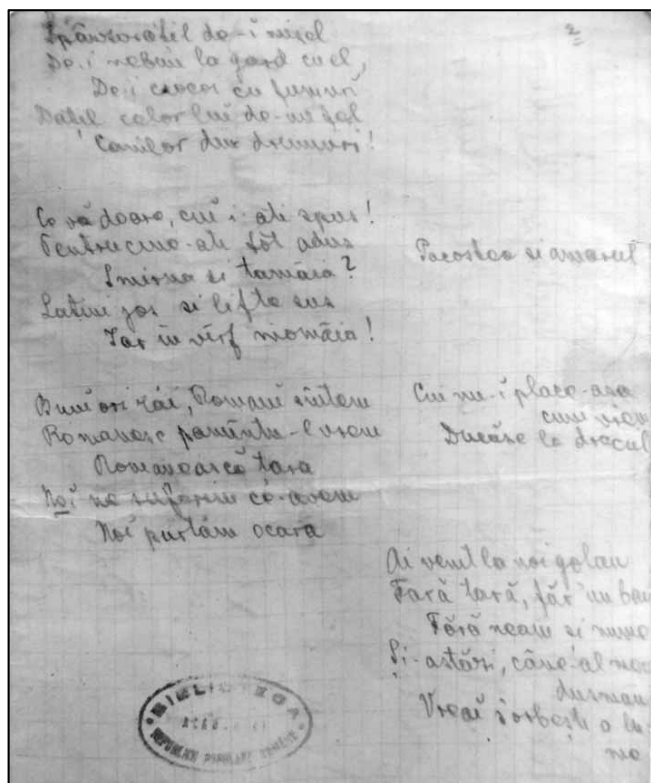 2
Spânzurațil de-i mișel
De-i nebun la gard cu el,
De-i cu fumuri
Dațil celor lui de-un fel
Canilor din drumuri!
Ce vă doare, cui i-ați spus!
Pentru cine-ați tot adus
Smirna si tamâia?
Latini jos si lifte sus
Iar in vîrf momâia!
Pacostea si amarul
Buni ori răi, Români sîntem
Romanesc pamîntu-l vrem
Românească tara
Noi ne suferim ce-avem
Noi purtăm ocara
Cui nu-i place-asa
cum vrem
Ducăse la dracul
Ai venit la noi golan
Fară tară, făr' un ban
Fără neam si nume
Și-astăzi, câne-al meu
dusman
Vreai s'orbești o lu-
me
BIBLIOTECA
REPUBLICII POPULARE ROMÂNE